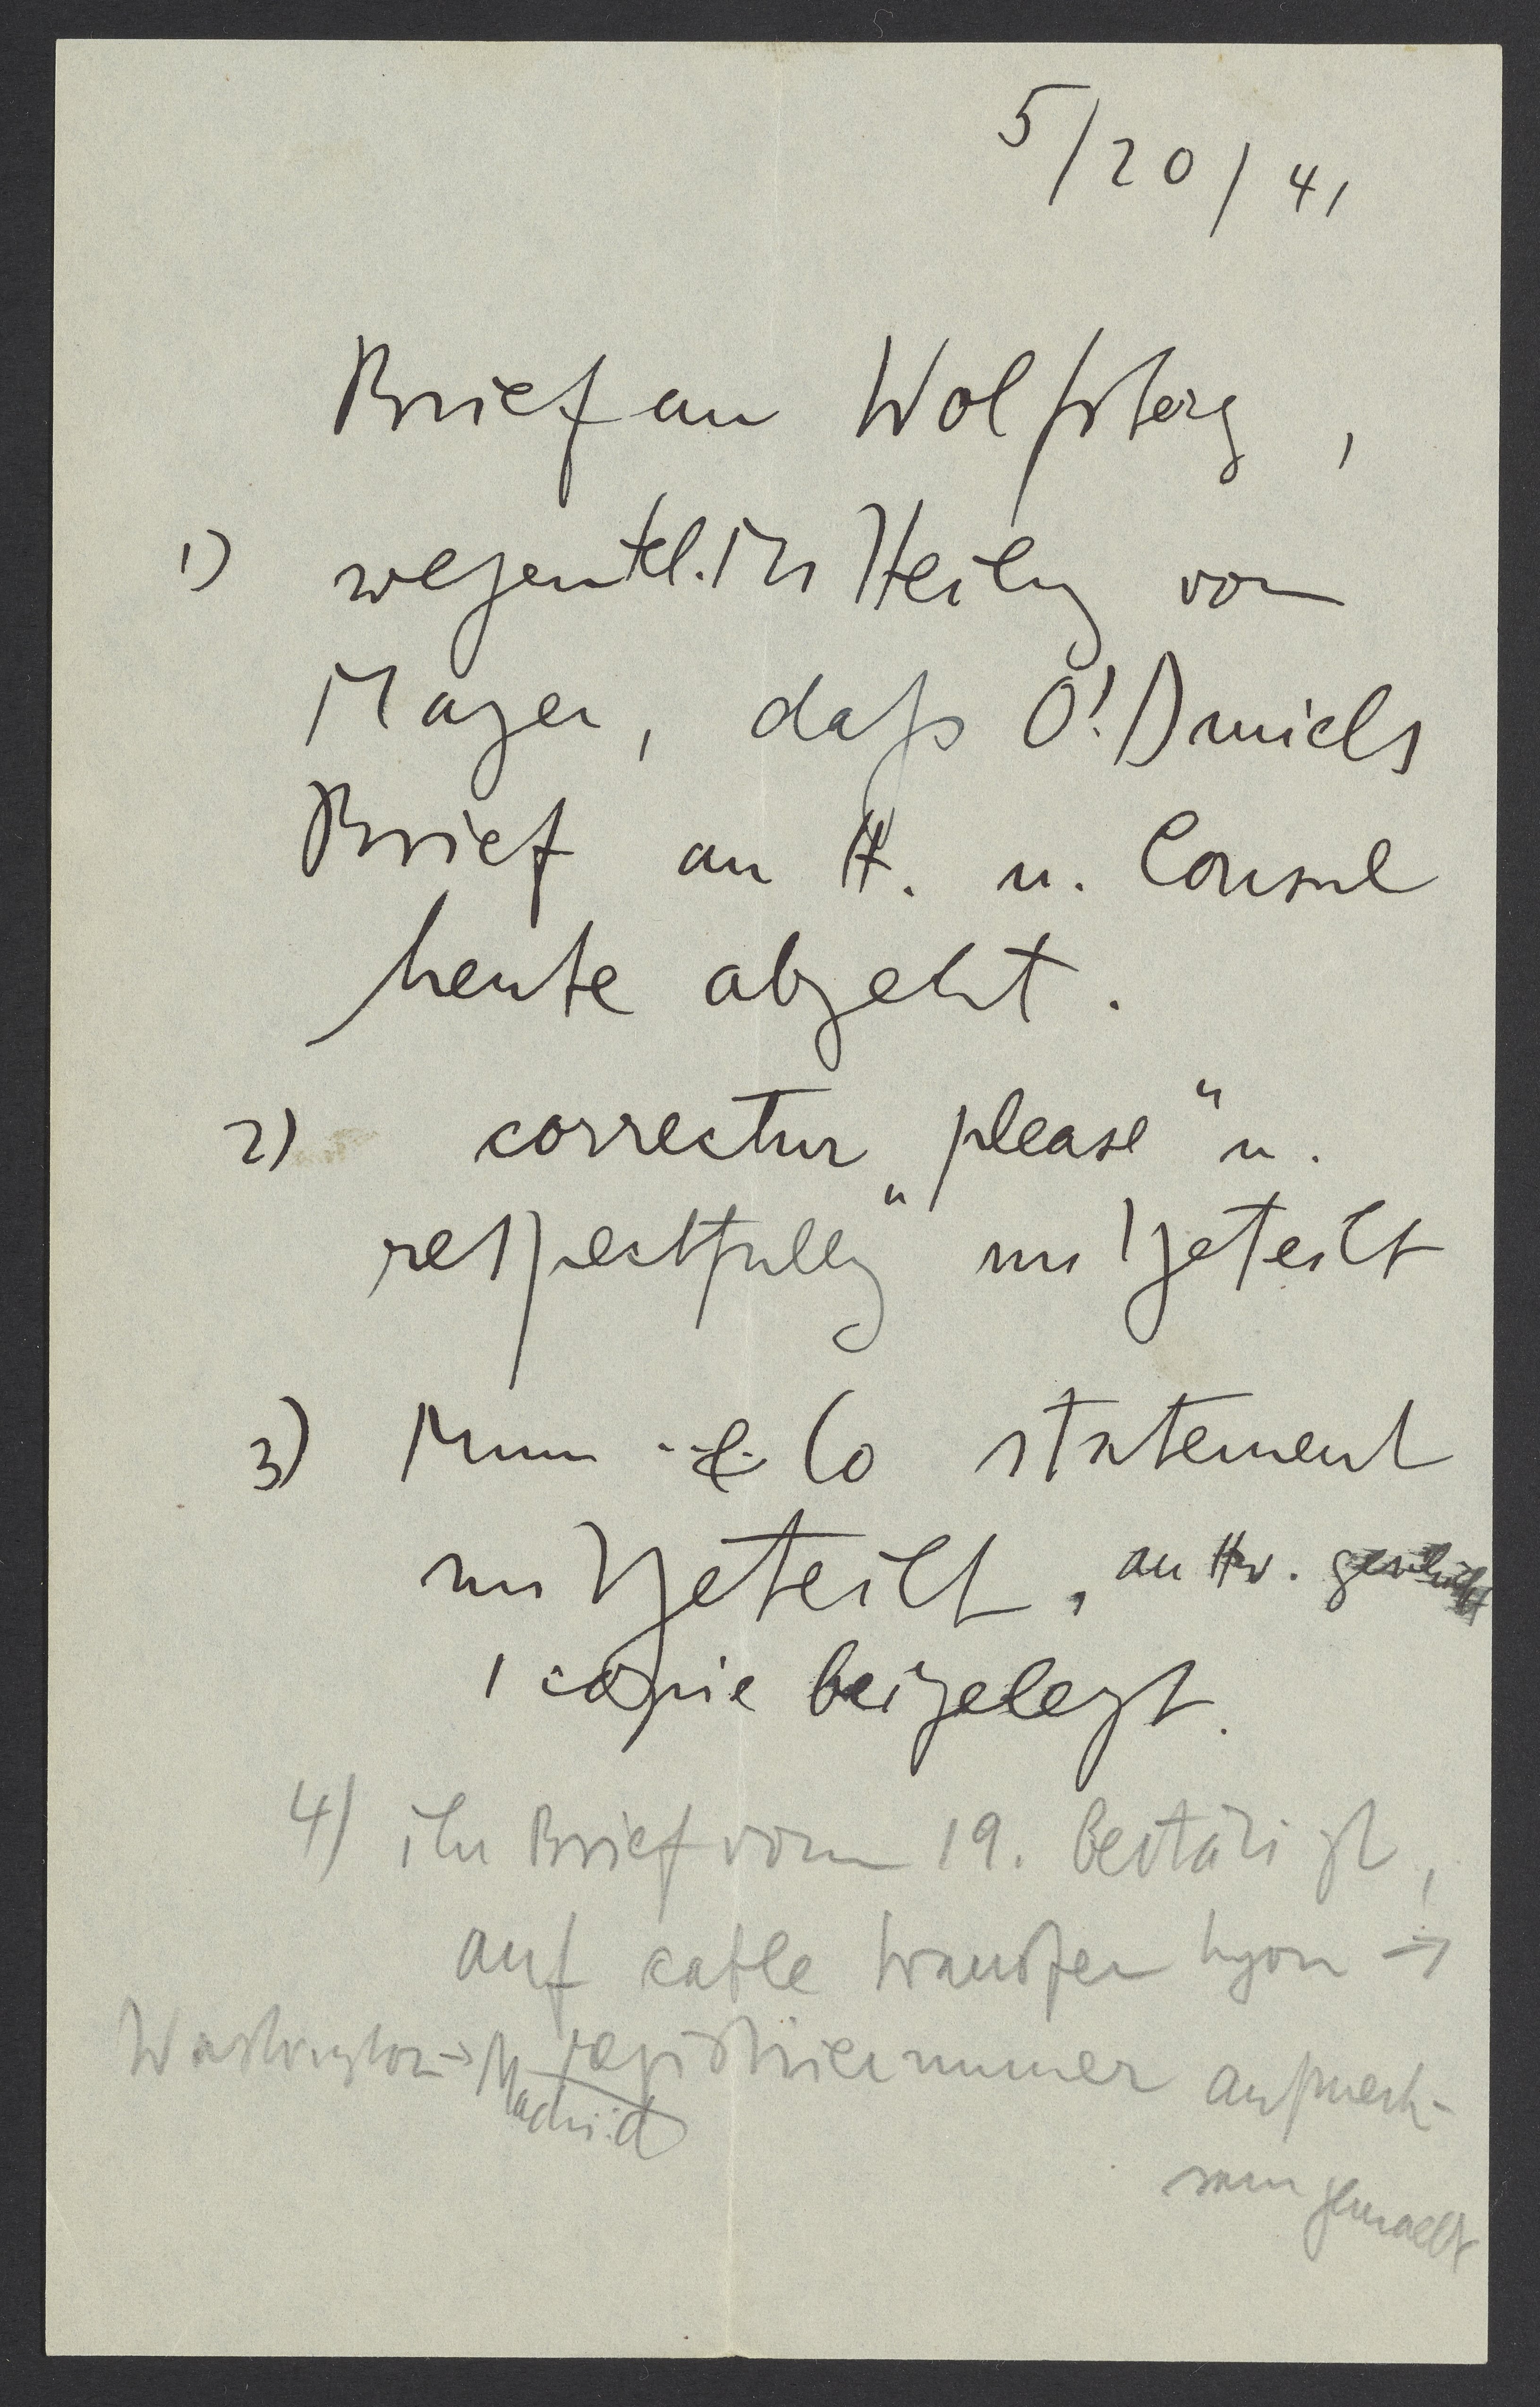 5/20/41
Brief an Wolfsberg,
1) wesentl. Mitteilg von
Mayer, daß O'Daniels
Brief an H. u. Consul
heute abgeht.
2) correctur „please" u.
„respectfully" mitgeteilt
3) Mumm & Co statement
mitgeteilt, an Hr. geschickt
1 copie beigelegt.
4) ihr Brief vom 19. bestätigt,
auf cable transfer Lyon →
Washington → Madrid registriernummer aufmerk-
sam gemacht